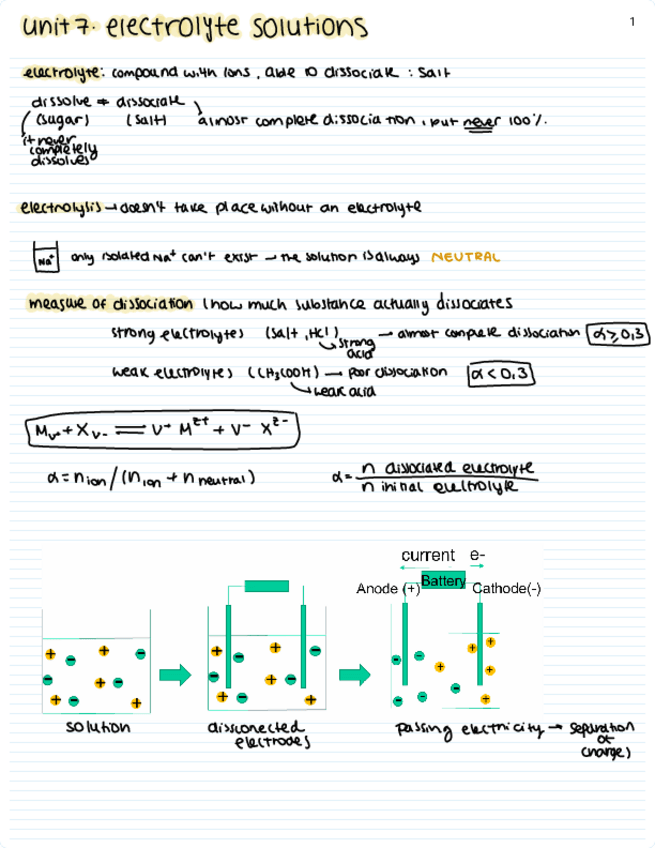 1
unit 7. electrolyte solutions
electrolyte: compound with ions, able to dissociate : salt
dissolve ≠ dissociate
(sugar) (salt) almost complete dissociation, but never 100%.
it never
completely
dissolves
electrolysis → doesn't take place without an electrolyte
Na⁺ only isolated Na⁺ can't exist → the solution is always NEUTRAL
measure of dissociation (how much substance actually dissociates
strong electrolytes (salt, HCl) → almost complete dissociation α ≥ 0,3
strong
acid
weak electrolytes (CH₃COOH) → poor dissociation α < 0,3
weak acid
Mᵥ₊ + Xᵥ₋ ⇌ V⁺ M^z+ + V⁻ X^z-
α = n ion / (n ion + n neutral) α = n dissociated electrolyte / n initial electrolyte
current e-
Anode (+) Battery Cathode(-)
solution disconnected passing electricity → separation
electrodes of
charges